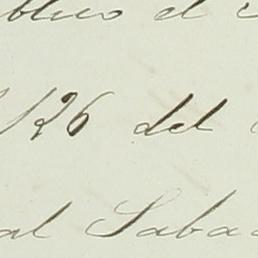 blico el
126 del
al Saba